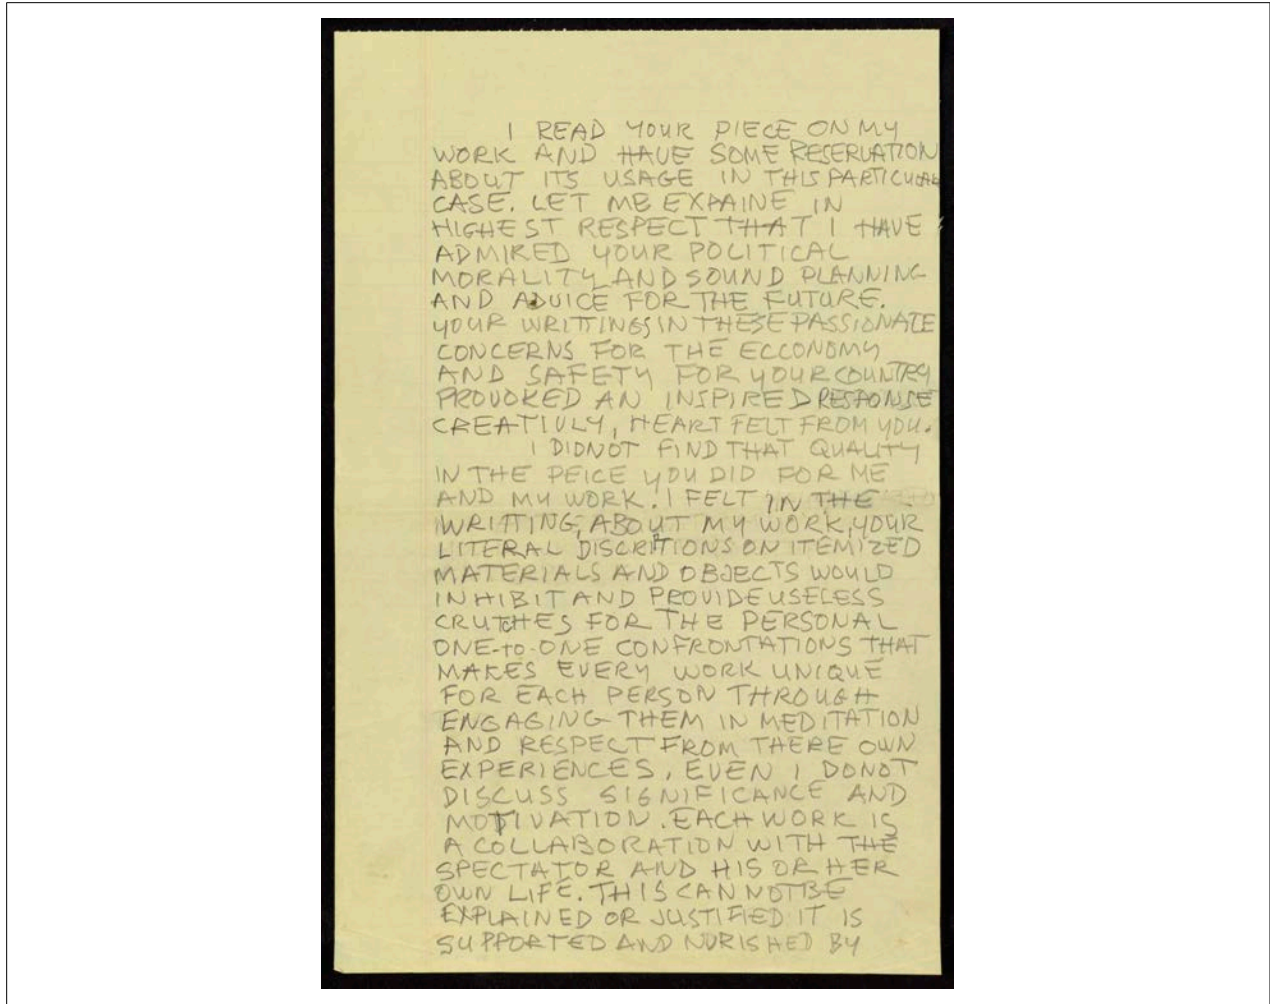 I READ YOUR PIECE ON MY
WORK AND HAVE SOME RESERVATION
ABOUT ITS USAGE IN THIS PARTICULAR
CASE. LET ME EXPAINE IN
HIGHEST RESPECT THAT I HAVE
ADMIRED YOUR POLITICAL
MORALITY AND SOUND PLANNING
AND ADVICE FOR THE FUTURE.
YOUR WRITTINGS IN THESE PASSIONATE
CONCERNS FOR THE ECCONOMY
AND SAFETY FOR YOUR COUNTRY
PROVOKED AN INSPIRED RESPONSE
CREATIVLY, HEART FELT FROM YOU.
I DIDNOT FIND THAT QUALITY
IN THE PEICE YOU DID FOR ME
AND MY WORK. I FELT IN THE
WRITTING, ABOUT MY WORK, YOUR
LITERAL DISCRIPTIONS ON ITEMIZED
MATERIALS AND OBJECTS WOULD
INHIBIT AND PROVIDE USELESS
CRUTCHES FOR THE PERSONAL
ONE-to-ONE CONFRONTATIONS THAT
MAKES EVERY WORK UNIQUE
FOR EACH PERSON THROUGH
ENGAGING THEM IN MEDITATION
AND RESPECT FROM THERE OWN
EXPERIENCES, EVEN I DONOT
DISCUSS SIGNIFICANCE AND
MOTIVATION. EACH WORK IS
A COLLABORATION WITH THE
SPECTATOR AND HIS OR HER
OWN LIFE. THIS CAN NOT BE
EXPLAINED OR JUSTIFIED IT IS
SUPPORTED AND NURISHED BY